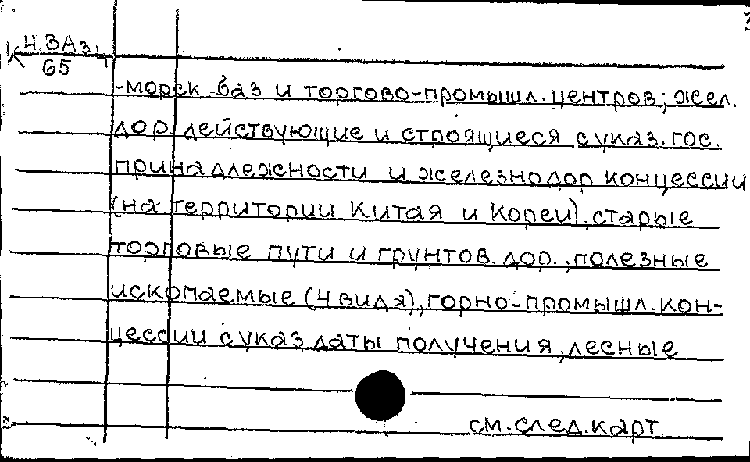 К Ч.ВАз.
65
-морск.баз и торгово-промышл.центров; жел.
дор. действующие и строящиеся с указ. гос.
принадлежности и железнодор концессии
(на территории Китая и Кореи), старые
торговые пути и грунтов. дор., полезные
ископаемые (4 вида), горно-промышл. кон-
цессии с указ. даты получения, лесные
см. след. карт